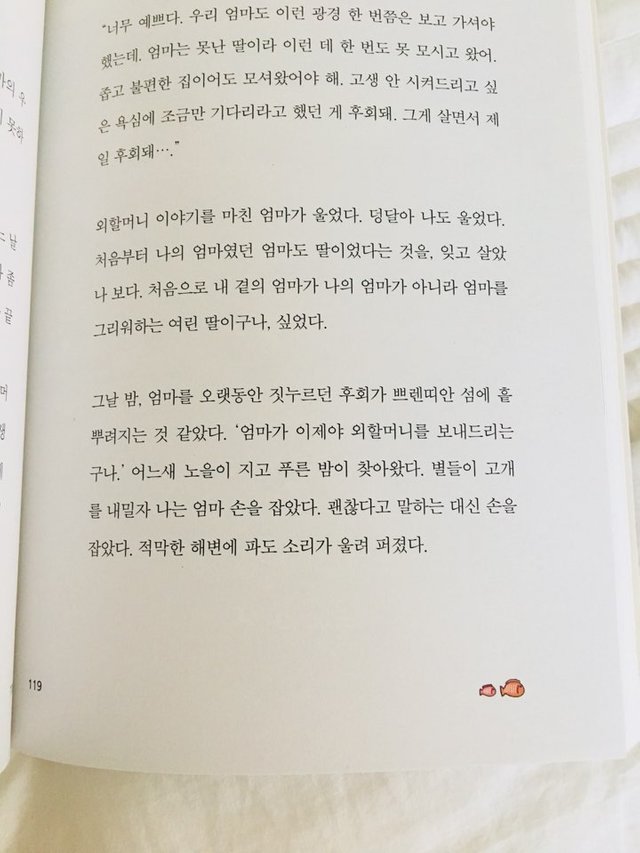 “너무 예쁘다. 우리 엄마도 이런 광경 한 번쯤은 보고 가셔야
했는데. 엄마는 못난 딸이라 이런 데 한 번도 못 모시고 왔어.
좁고 불편한 집이어도 모셔왔어야 해. 고생 안 시켜드리고 싶
은 욕심에 조금만 기다리라고 했던 게 후회돼. 그게 살면서 제
일 후회돼….”
외할머니 이야기를 마친 엄마가 울었다. 덩달아 나도 울었다.
처음부터 나의 엄마였던 엄마도 딸이었다는 것을, 잊고 살았
나 보다. 처음으로 내 곁의 엄마가 나의 엄마가 아니라 엄마를
그리워하는 여린 딸이구나, 싶었다.
그날 밤, 엄마를 오랫동안 짓누르던 후회가 쁘렌띠안 섬에 흩
뿌려지는 것 같았다. ‘엄마가 이제야 외할머니를 보내드리는
구나.’ 어느새 노을이 지고 푸른 밤이 찾아왔다. 별들이 고개
를 내밀자 나는 엄마 손을 잡았다. 괜찮다고 말하는 대신 손을
잡았다. 적막한 해변에 파도 소리가 울려 퍼졌다.
119